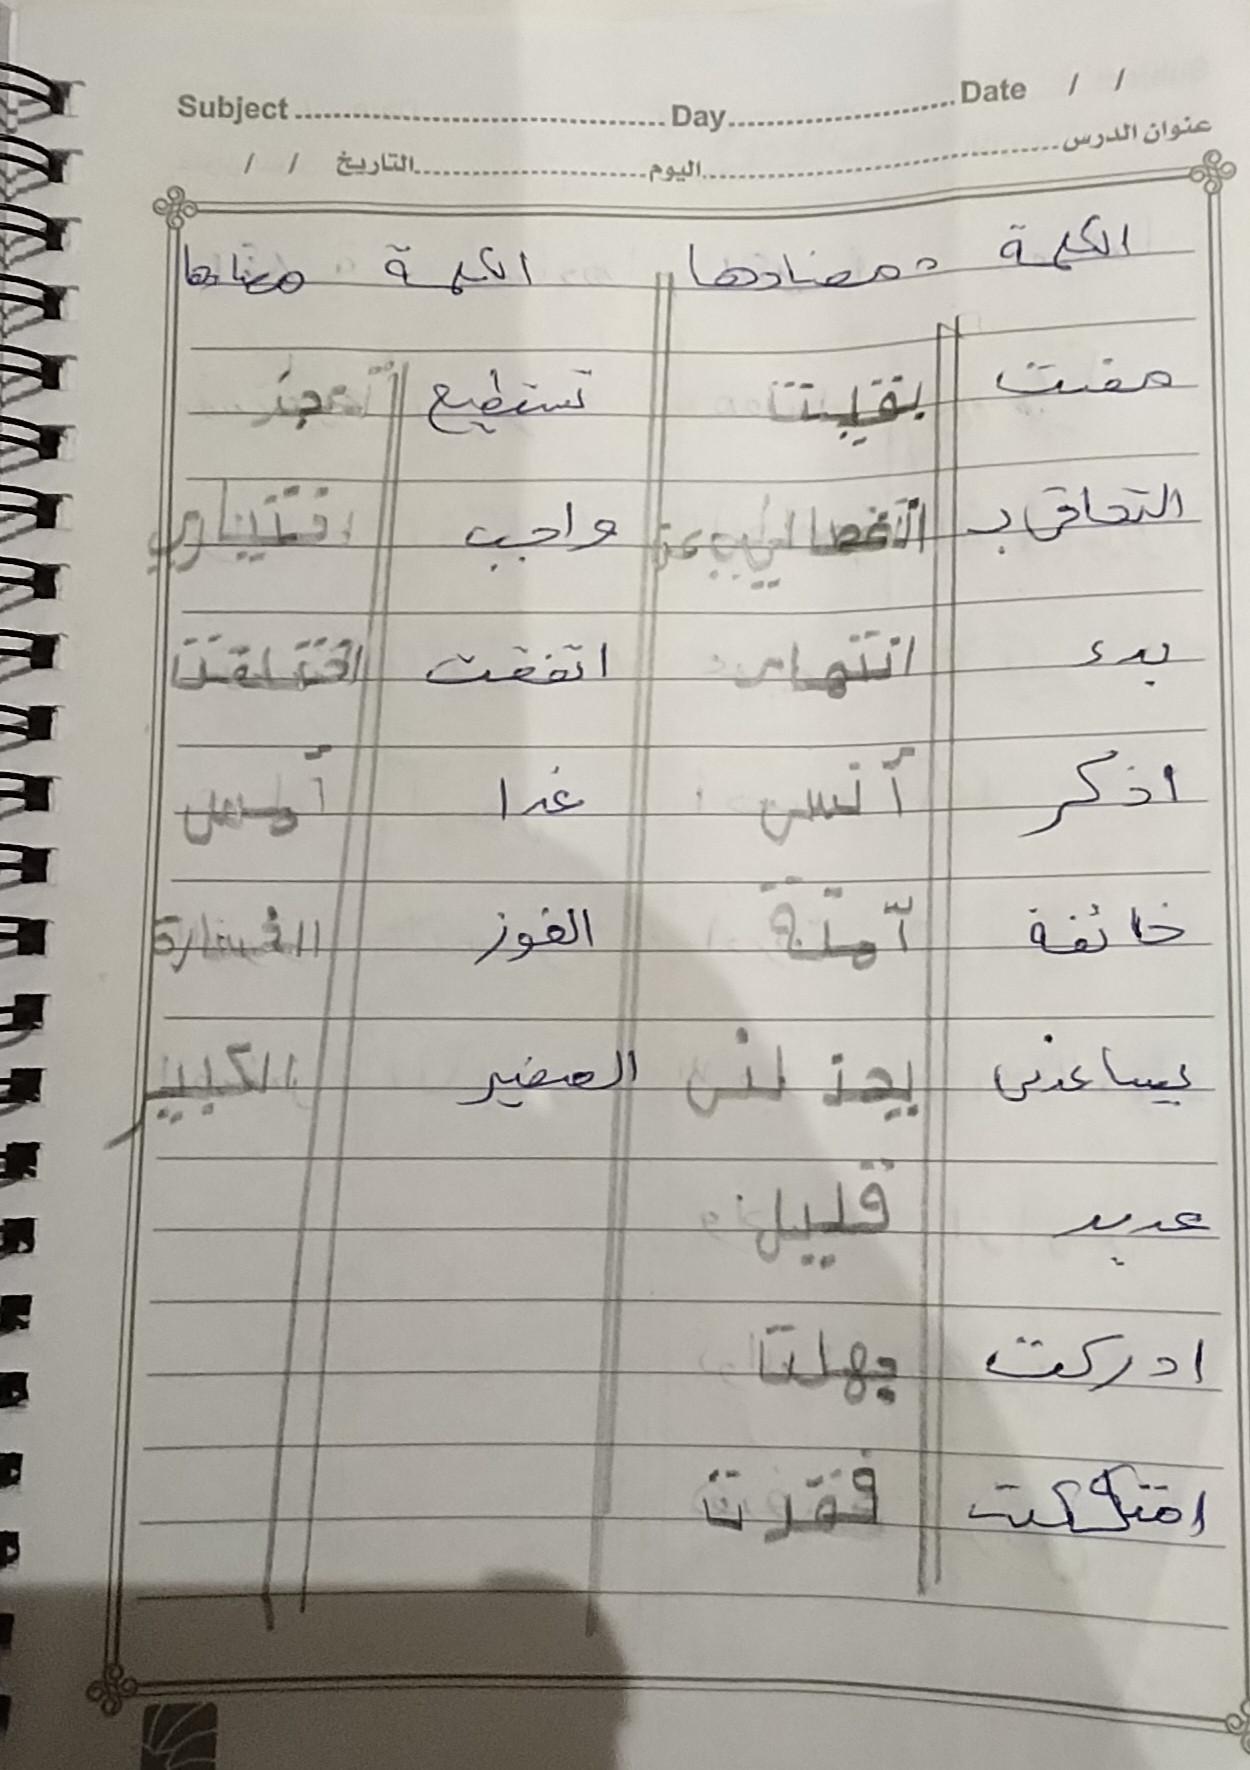 Subject Day Date / /
عنوان الدرس اليوم التاريخ / /
الكلمة مضادها الكلمة مضادها
مضت بقيت تستطيع تعجز
التحاقى بـ واجب
بدء انتهاء اتفقت
اذكر أنسى غدا أمس
خائفة آمنة الفوز الخسارة
يساعدنى يخذلنى الصغير الكبير
عديد قليل
ادركت جهلت
امتلكت فقدت